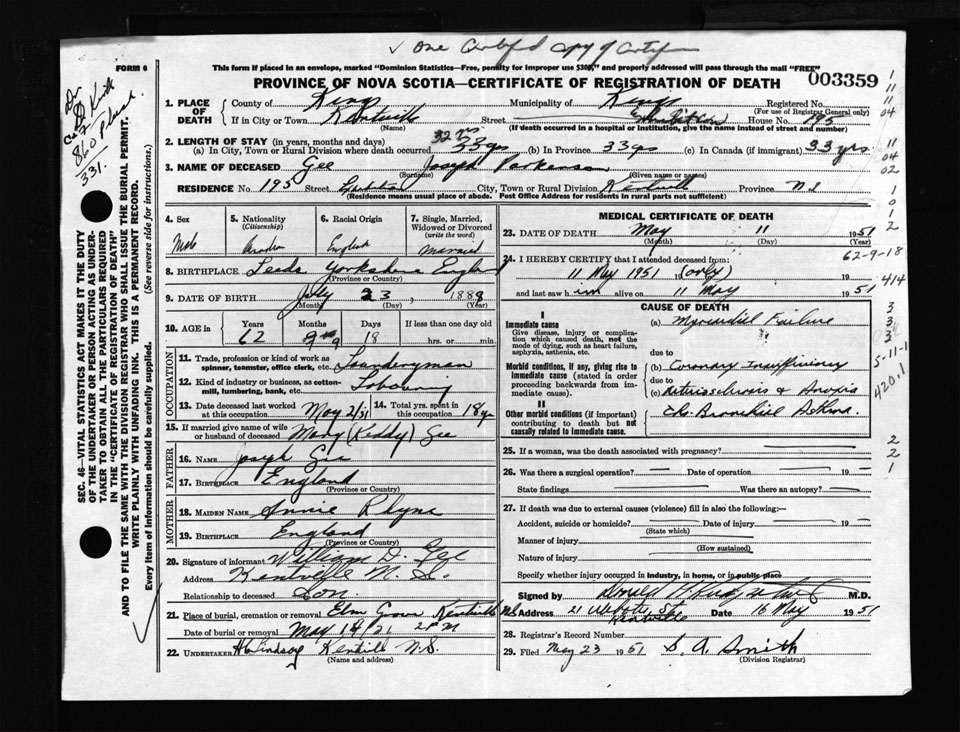 ✓ One Certified copy of Certif
FORM 6
This form if placed in an envelope, marked "Dominion Statistics—Free, penalty for improper use $300," and properly addressed will pass through the mail "FREE"
PROVINCE OF NOVA SCOTIA—CERTIFICATE OF REGISTRATION OF DEATH
003359
1. PLACE OF DEATH
County of Kings Municipality of Kings Registered No.
(For use of Registrar General only)
If in City or Town Kentville Street Exhibition House No. 195
(Name) (If death occurred in a hospital or institution, give the name instead of street and number)
2. LENGTH OF STAY (in years, months and days)
32 yrs
(a) In City, Town or Rural Division where death occurred (b) In Province 33 yrs (c) In Canada (if immigrant) 33 yrs.
3. NAME OF DECEASED Gee Joseph Parkerson
(Surname) (Given name or names)
RESIDENCE No. 195 Street Exhibition City, Town or Rural Division Kentville Province N.S
(Residence means usual place of abode. Post Office address for residents in rural parts not sufficient)
4. Sex
Male
5. Nationality
(Citizenship)
Canadian
6. Racial Origin
English
7. Single, Married, Widowed or Divorced
(write the word)
Married
8. BIRTHPLACE Leeds Yorkshire England
(Province or Country)
9. DATE OF BIRTH July 23, 1888
(Month) (Day) (Year)
10. AGE in
Years Months Days If less than one day old
62 9 18 hrs. or min.
OCCUPATION
11. Trade, profession or kind of work as spinner, teamster, office clerk, etc. Laundryman
12. Kind of industry or business, as cotton-mill, lumbering, bank, etc. Labouring
13. Date deceased last worked at this occupation May 2/51 14. Total yrs. spent in this occupation 18 yrs
15. If married give name of wife or husband of deceased Mary (Keddy) Gee
FATHER
16. Name Joseph Gee
17. Birthplace England
(Province or Country)
MOTHER
18. MAIDEN NAME Annie Rhyne
19. Birthplace England
(Province or Country)
20. Signature of informant William D. Gee
Address Kentville N.S.
Relationship to deceased Son.
21. Place of burial, cremation or removal Elm Grove Kentville NS
Date of burial or removal May 14 2 PM
22. UNDERTAKER H Lindsay Kentville N.S.
(Name and address)
MEDICAL CERTIFICATE OF DEATH
23. DATE OF DEATH May 11 1951
(Month) (Day) (Year)
24. I HEREBY CERTIFY that I attended deceased from:
11 May 1951 (only) 19
and last saw him alive on 11 May 1951
CAUSE OF DEATH
I
Immediate cause
Give disease, injury or complication which caused death, not the mode of dying, such as heart failure, asphyxia, asthenia, etc.
(a) Myocardial Failure
due to
Morbid conditions, if any, giving rise to immediate cause (stated in order proceeding backwards from immediate cause).
(b) Coronary Insufficiency
due to
(c) Arteriosclerosis &
II
Other morbid conditions (if important) contributing to death but not causally related to immediate cause.
Chr. Bronchial Asthma.
25. If a woman, was the death associated with pregnancy?
26. Was there a surgical operation? Date of operation 19
State findings Was there an autopsy?
27. If death was due to external causes (violence) fill in also the following:—
Accident, suicide or homicide? Date of injury 19
(State which)
Manner of injury
(How sustained)
Nature of injury
Specify whether injury occurred in industry, in home, or in public place
Signed by M.D.
Address 21 Webster St. Kentville Date 16 May 1951
28. Registrar's Record Number
29. Filed May 23 1951 S. A. Smith
(Division Registrar)
SEC. 46—VITAL STATISTICS ACT MAKES IT THE DUTY OF THE UNDERTAKER OR PERSON ACTING AS UNDERTAKER TO OBTAIN ALL THE PARTICULARS REQUIRED IN THE "CERTIFICATE OF REGISTRATION OF DEATH" AND TO FILE THE SAME WITH THE DIVISION REGISTRAR WHO SHALL ISSUE THE BURIAL PERMIT.
WRITE PLAINLY WITH UNFADING INK. THIS IS A PERMANENT RECORD.
Every item of information should be carefully supplied. (See reverse side for instructions.)
331.
1
11
11
04
11
04
02
1
0
1
2
62-9-18
414
3
3
3
5-11-1
420.1
2
2
1